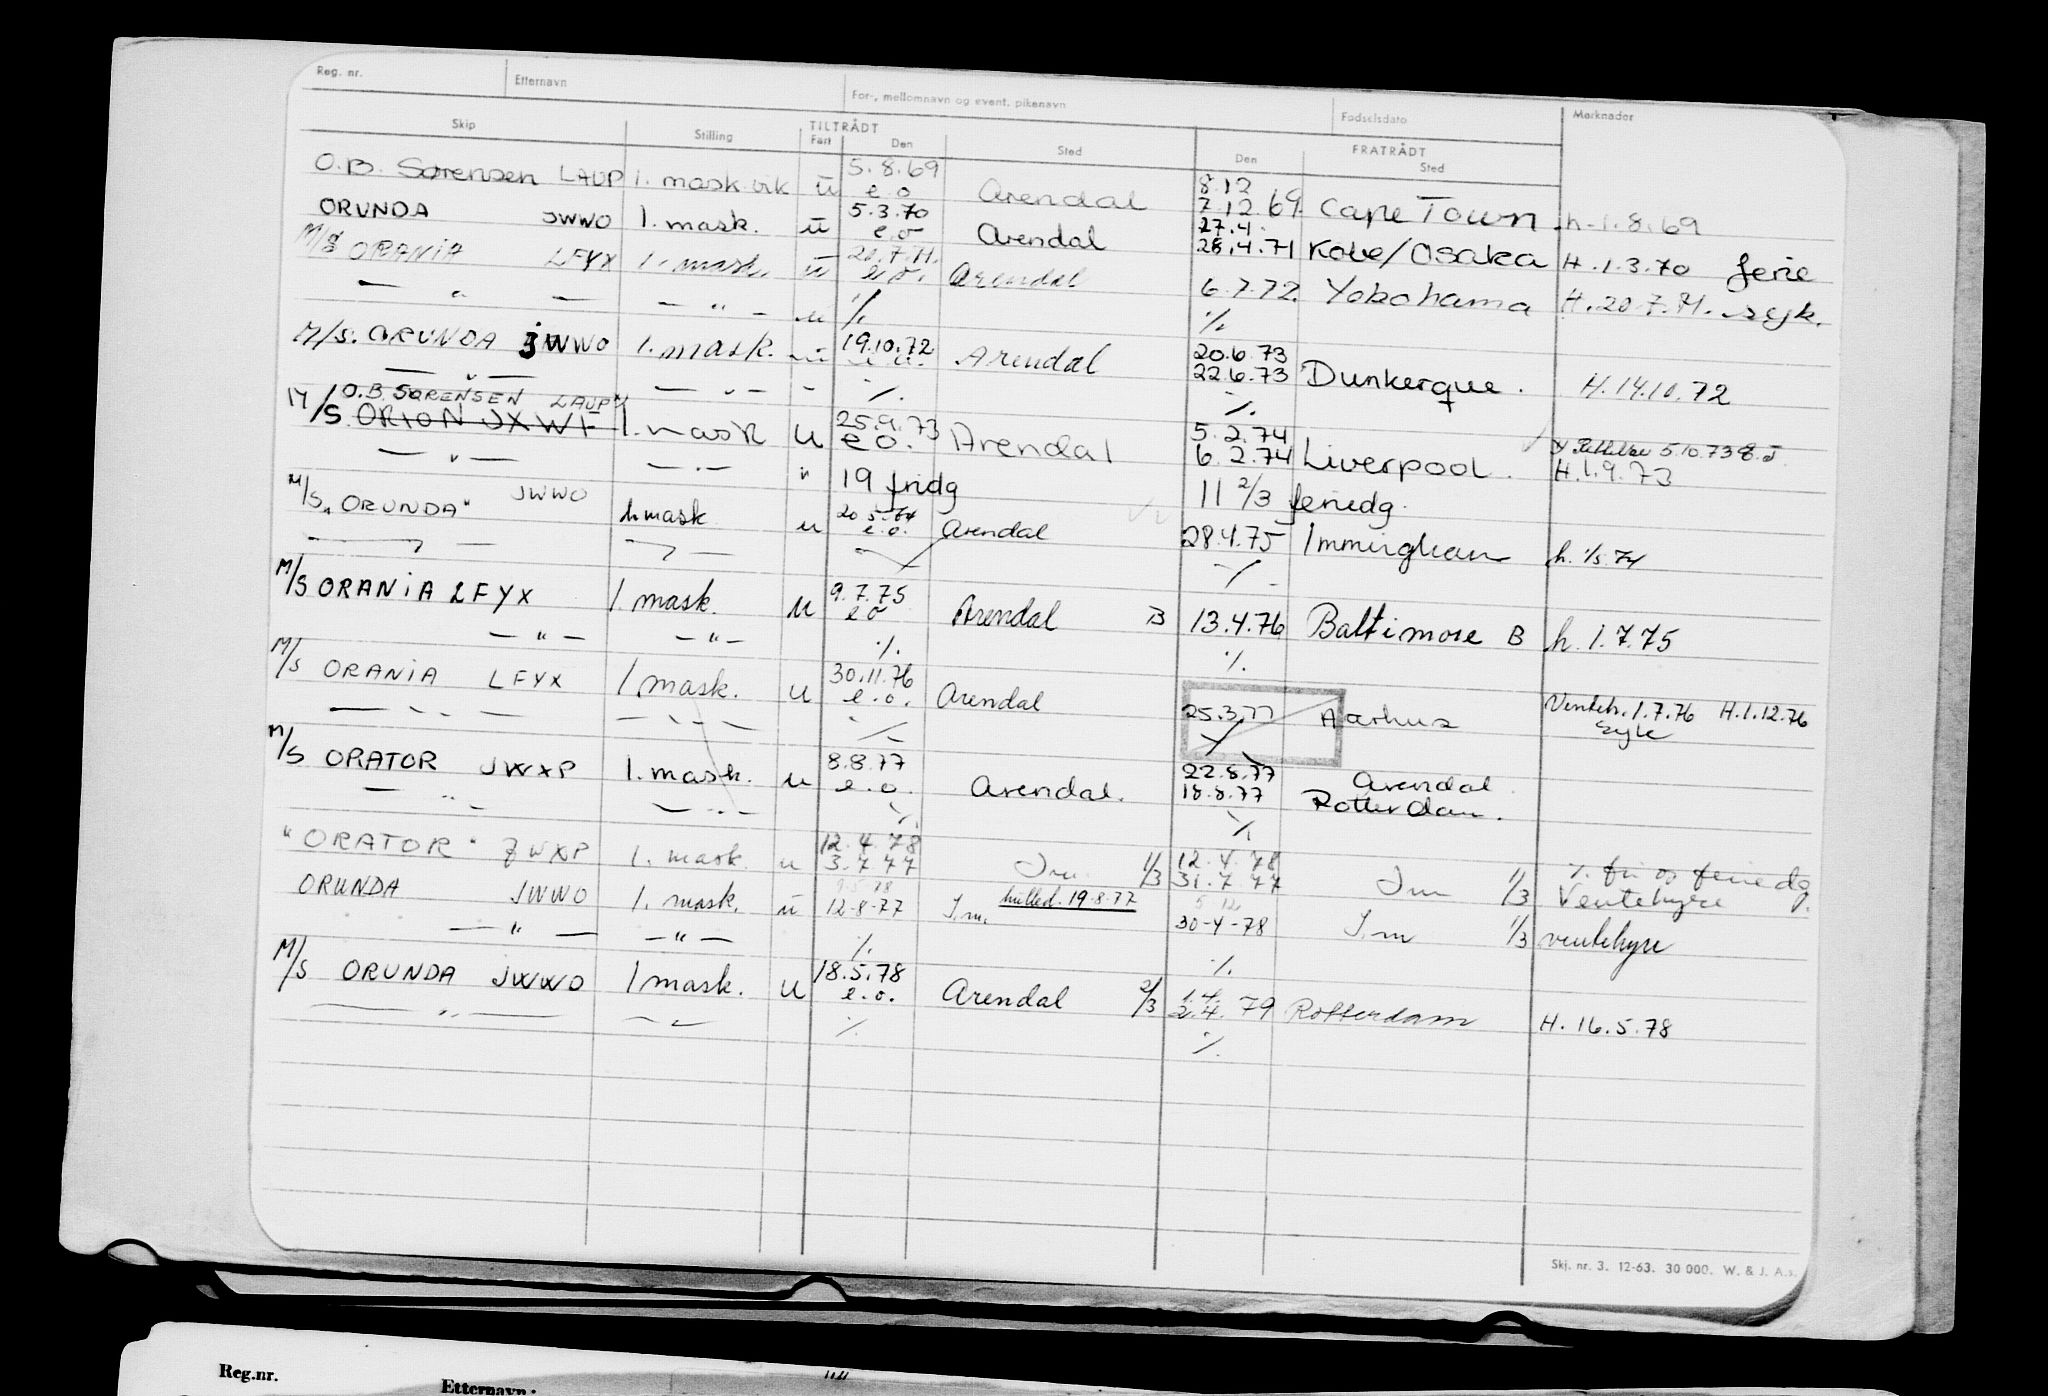 Reg. nr. Etternavn For-, mellomnavn og event. pikenavn Fødselsdato Merknader
Skip Stilling TILTRÅDT FRATRÅDT
Fart Den Sted Den Sted
O.B. Sørensen LAUP 1. mask vik ū 5.8.69 e.o Arendal 8.12 7.12.69. Cape Town h. 1.8.69
ORUNDA JWWO 1. mask. ū 5.3.70 e.o Arendal 27.4. 28.4.71 Kobe/Osaka H. 1.3.70 ferie
M/S ORANIA LFYX 1. mask. ū 20.7.71. e.o. Arendal 6.7.72. Yokohama H. 20.7.71. sejk.
— " — — " — u ./. ./.
M/S. ORUNDA JWWO 1. mask. u 19.10.72 e.o. Arendal 20.6.73 22.6.73 Dunkerque. H. 14.10.72
— " — — " — - ./. ./.
O.B. SØRENSEN LAUP
M/S ORION JXWF 1. mask u 25.9.73 e.o. Arendal 5.2.74 6.2.74 Liverpool. 5.10.73 H. 1.9.73
— " — — " — " 19 fridg 11 2/3 feriedg.
M/S "ORUNDA" JWWO 1. mask u 20.5.64 e.o. Arendal 28.4.75 Immingham h. 1/5.74
— " — — " — ./. ./.
M/S ORANIA LFYX 1. mask. u 9.7.75 e o Arendal B 13.4.76 Baltimore B h. 1.7.75
— " — — " — ./. ./.
M/S ORANIA LFYX 1 mask. u 30.11.76 e.o. Arendal 25.3.77 Aarhus Venteh. 1.7.76 H. 1.12.76
— " — — " — ./. ./. syke
M/S ORATOR JWXP 1. mask. u 8.8.77 e.o. Arendal. 22.8.77 18.8.77 Arendal Rotterdam.
— " — — " — ./. ./.
"ORATOR" JWXP 1. mask. u 12.4.78 3.7.77 Im 1/3 12.4.78 31.7.77 Im 1/3 ./. fri og feriedg Ventehyre
ORUNDA JWWO 1. mask. u 12-8-77 I.m. hulled. 19.8.77 30-4-78 I.m 1/3 ventehyre
— " — — " — ./. ./.
M/S ORUNDA JWWO 1 mask. u 18.5.78 e.o. Arendal 2/3 1.4. 2.4.79 Rotterdam H. 16.5.78
— " — — " — ./. ./.
Skj. nr. 3. 12-63. 30 000. W. & J. A.s.
Reg.nr. Etternavn: